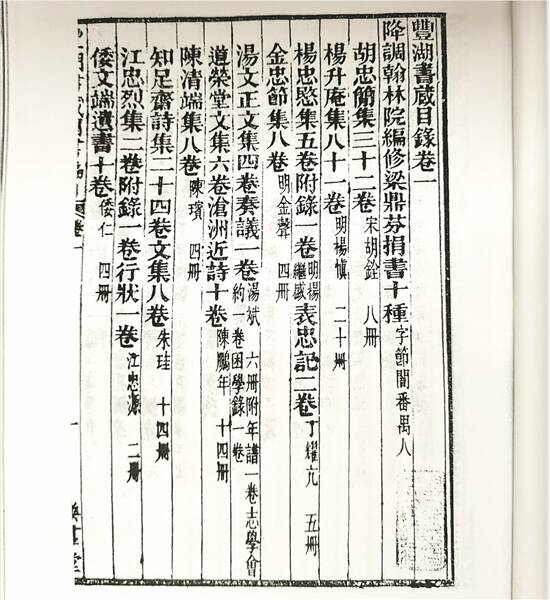 豐湖書藏目錄卷一
降調翰林院編修梁鼎芬捐書十種 字節闇番禺人
胡忠簡集三十二卷 宋胡銓 八冊
楊升庵集八十一卷 明楊慎 二十冊
楊忠愍集五卷附錄一卷 明楊繼盛 表忠記二卷 丁耀亢 五冊
金忠節集八卷 明金聲 四冊
湯文正文集四卷奏議一卷 湯斌 六冊附年譜一卷志學會約一卷困學錄一卷
道榮堂文集六卷滄洲近詩十卷 陳鵬年 十四冊
陳清端集八卷 陳璸 四冊
知足齋詩集二十四卷文集八卷 朱珪 十四冊
江忠烈集二卷附錄一卷行狀一卷 江忠源 二冊
倭文端遺書十卷 倭仁 四冊
一